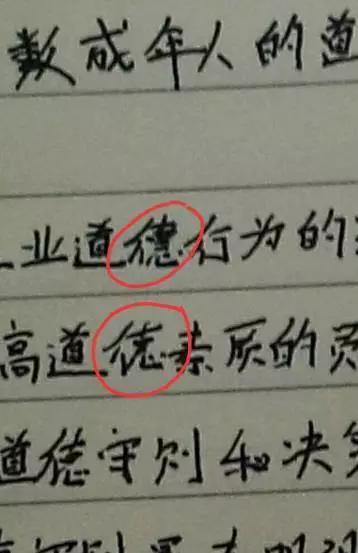 数成年人的道
业道德行为的
高道德素质的
道德守则和决